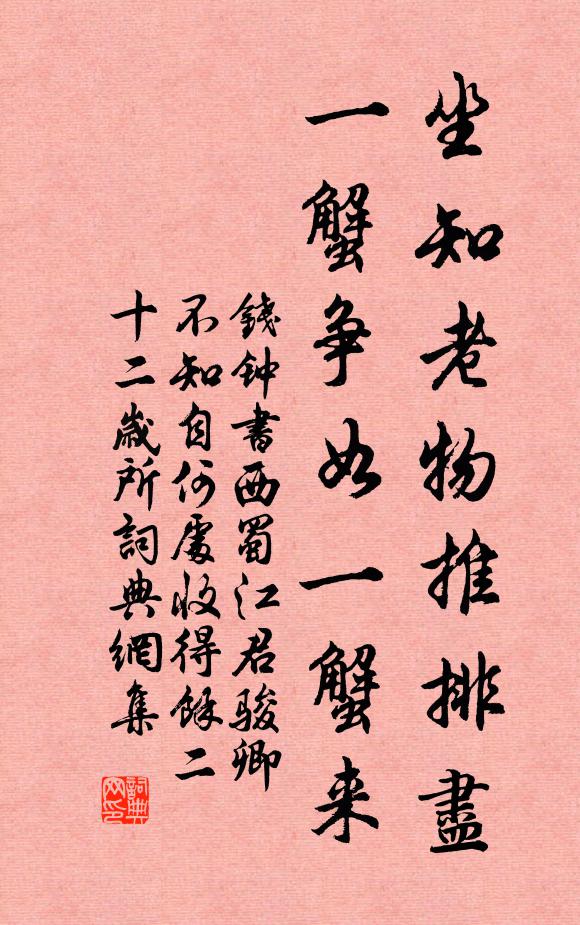 坐知老物推排盡
一蟹爭如一蟹来
錢钟書西蜀江君骏卿
不知自何處收得餘二
十二歲所詞典網集
詞典
网印